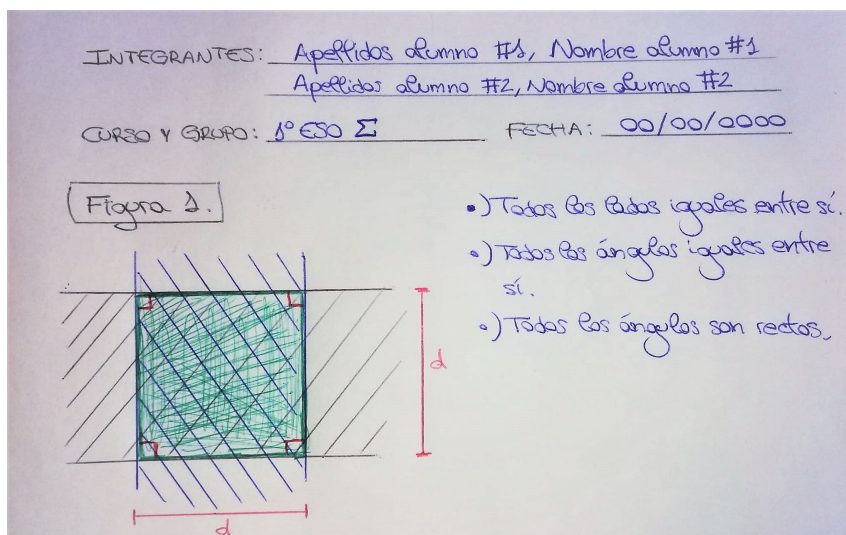 INTEGRANTES: Apellidos alumno #1, Nombre alumno #1
Apellidos alumno #2, Nombre alumno #2
CURSO Y GRUPO: 1º ESO Σ FECHA: 00/00/0000
Figura 1.
•) Todos los lados iguales entre sí.
•) Todos los ángulos iguales entre
sí.
•) Todos los ángulos son rectos.
d
d